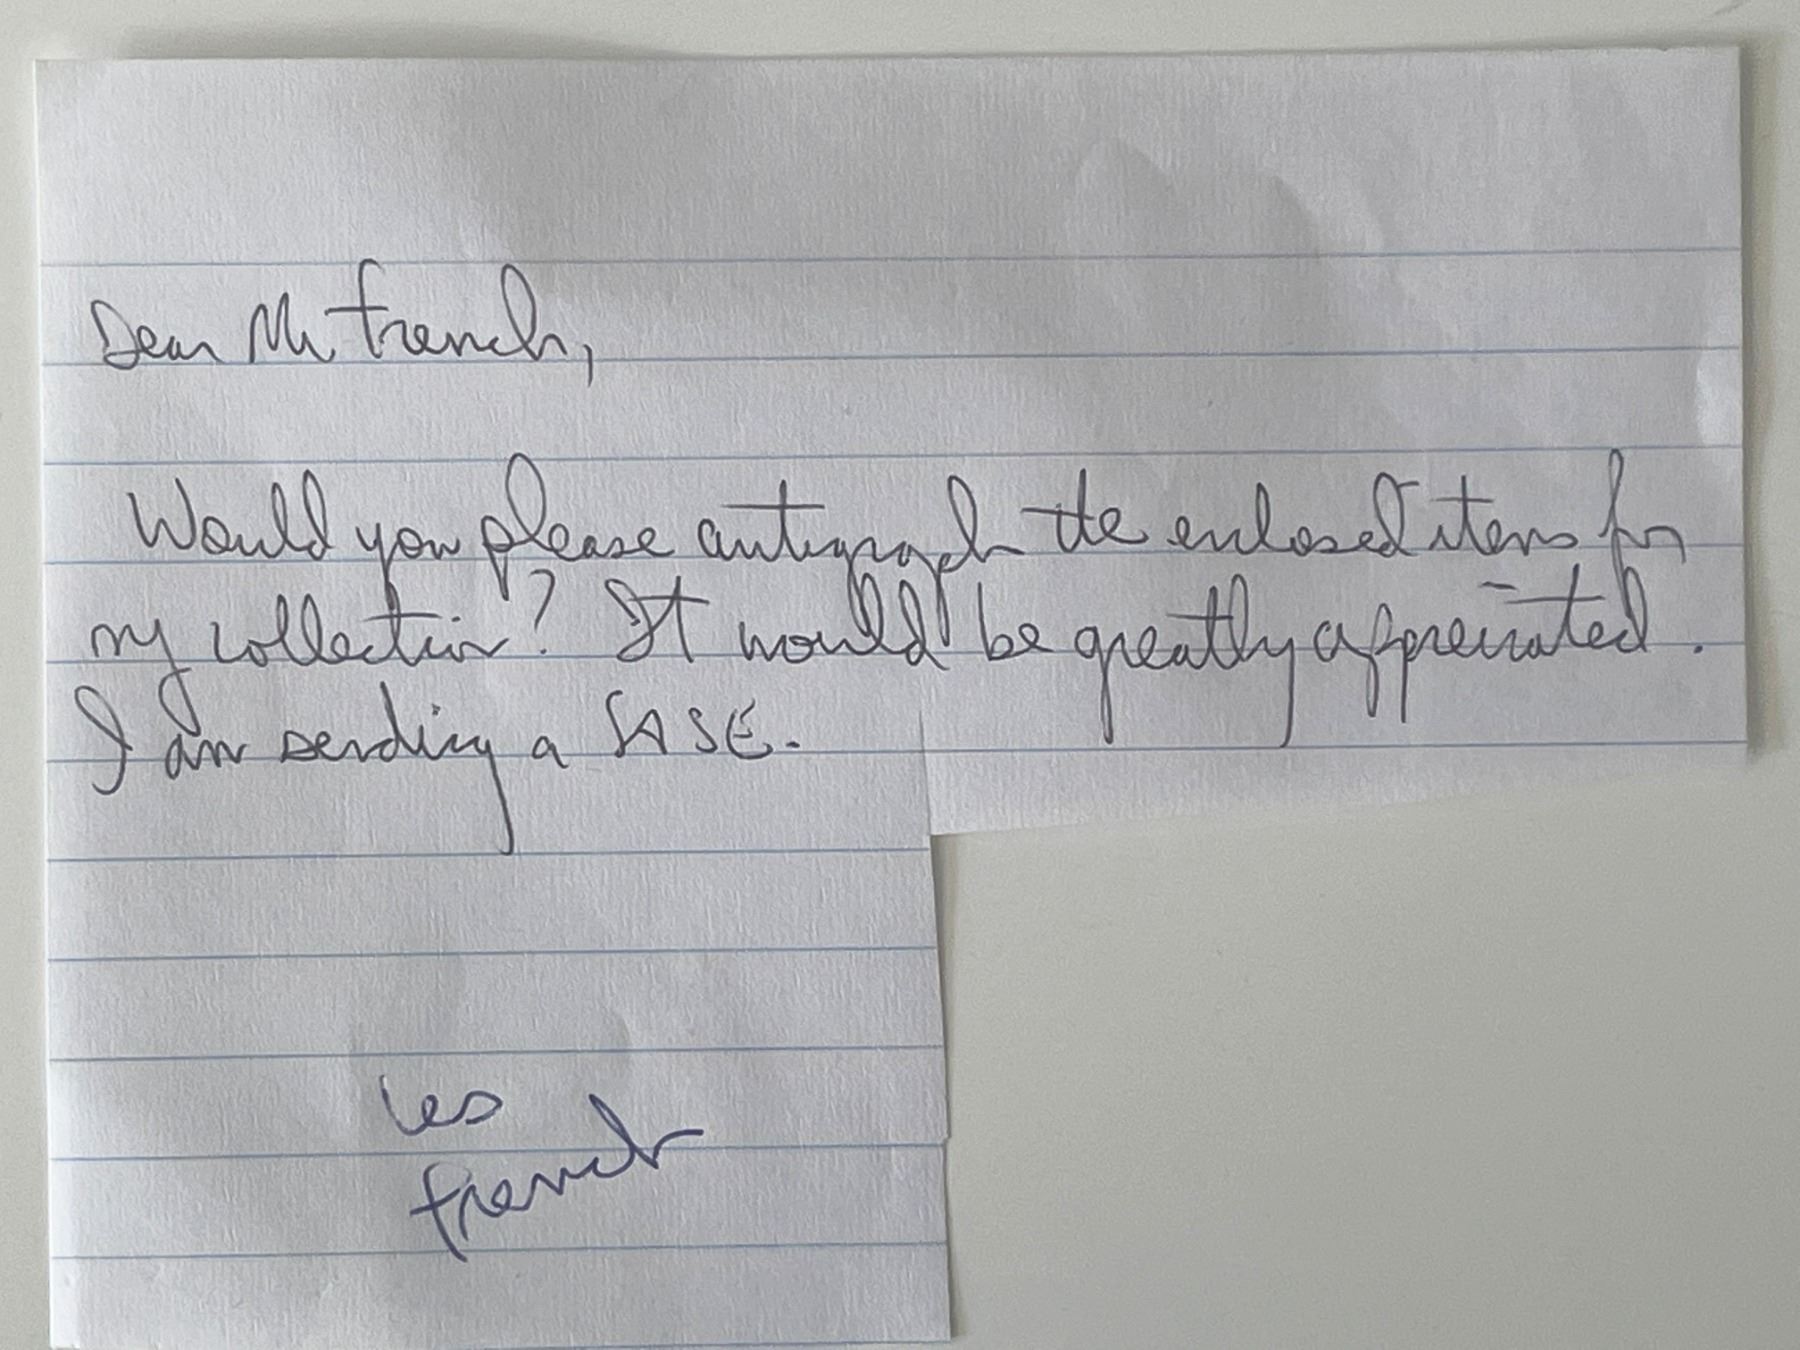 Dear Mr French,
Would you please autograph the enclosed items for
my collection? It would be greatly appreciated.
I am sending a SASE.
Les
French